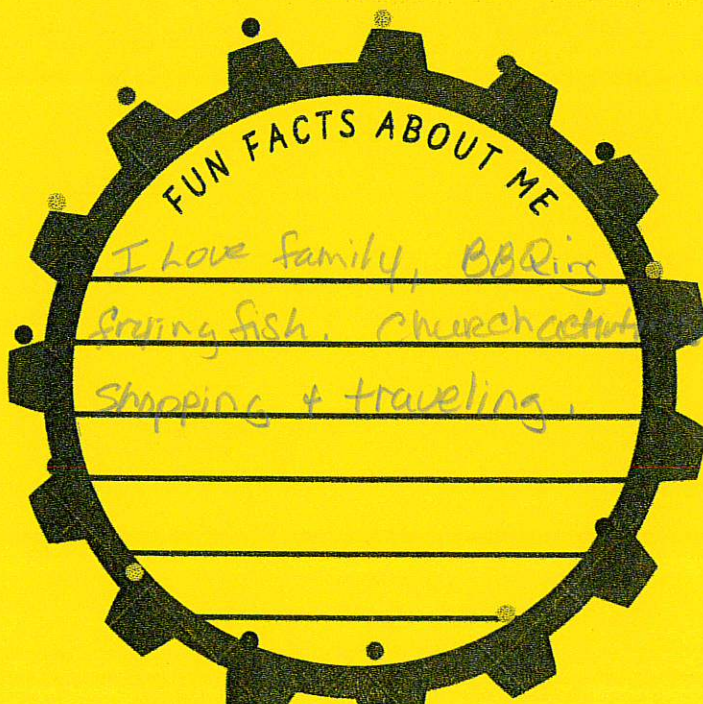 FUN FACTS ABOUT ME
I Love family, BBQing
frying fish. Church activities,
shopping & traveling.